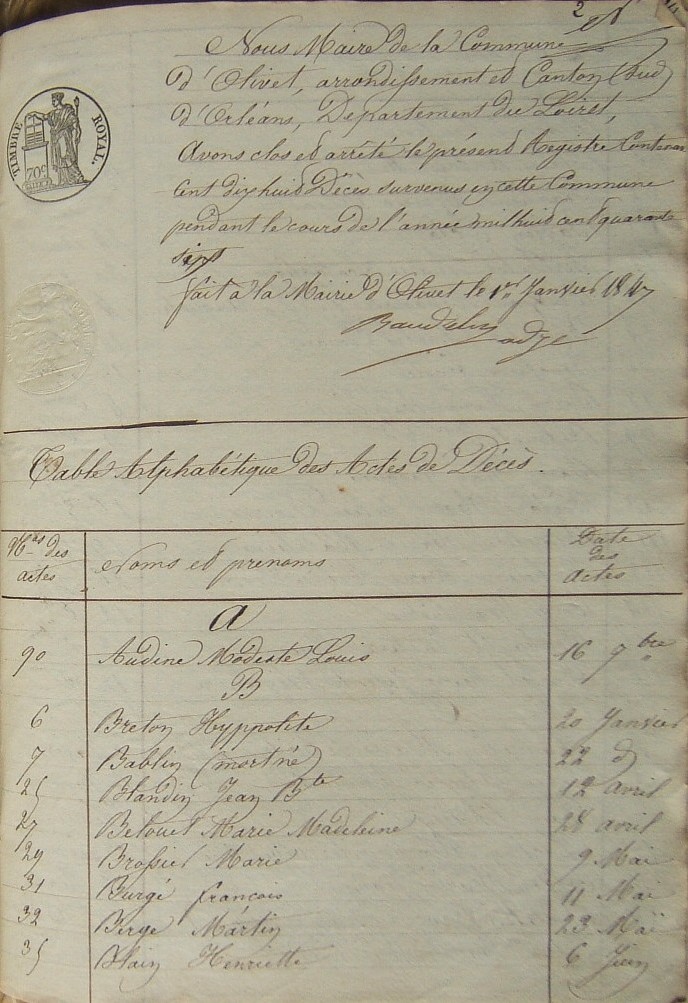 2
TIMBRE ROYAL.
70c
Nous Maire de la Commune
d'Olivet, arrondissement et Canton (Sud)
d'Orléans, Departement du Loiret,
avons clos et arrêté le présent Registre Contenan
cent dix huit Décès survenus en cette Commune
pendant le cours de l'année mil huit cent quarante
sept
fait à la Mairie d'Olivet le 1er Janvier 1847
Table Alphabétique des Actes de Décès.
Nos des actes
Noms et prenoms
Date des actes
A
90 Audine Modeste Louis 16 9bre
B
6 Breton Hyppolite 20 Janvier
7 Bablin (mort né) 22 d
25 Blandin Jean Bte 12 avril
27 Marie Madeleine 28 avril
29 Brossier Marie 9 Mai
31 Burgé françois 11 Mai
32 Berge Mártin 23 Maï
35 Blain Henriette 6 Juin